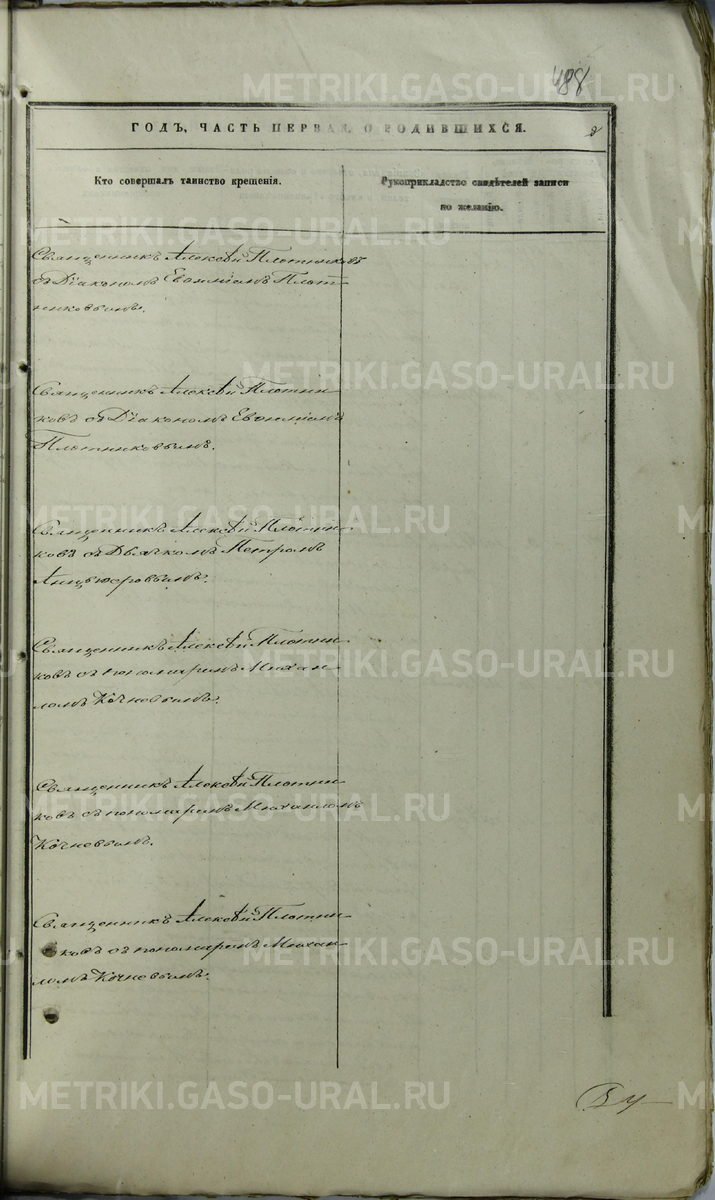 488
ГОДЪ, ЧАСТЬ ПЕРВАЯ, О РОДИВШИХСЯ.
2
Кто совершалъ таинство крещенія.
Рукоприкладство свидѣтелей записи
по желанію.
Священникъ Алексѣй Плотниковъ
съ Діакономъ Евѳиміемъ Плот-
никовымъ.
Священникъ Алексѣй Плотни-
ковъ съ Діакономъ Евѳиміемъ
Плотниковымъ.
Священникъ Алексѣй Плотни-
ковъ съ Дьячкомъ Петромъ
Священникъ Алексѣй Плотни-
ковъ съ пономаремъ Михаи-
ломъ Кочневымъ.
Священникъ Алексѣй Плотни-
ковъ съ пономаремъ Михаиломъ
Кочневымъ.
Священникъ Алексѣй Плотни-
ковъ съ пономаремъ Михаи-
ломъ Кочневымъ.
METRIKI.GASO-URAL.RU